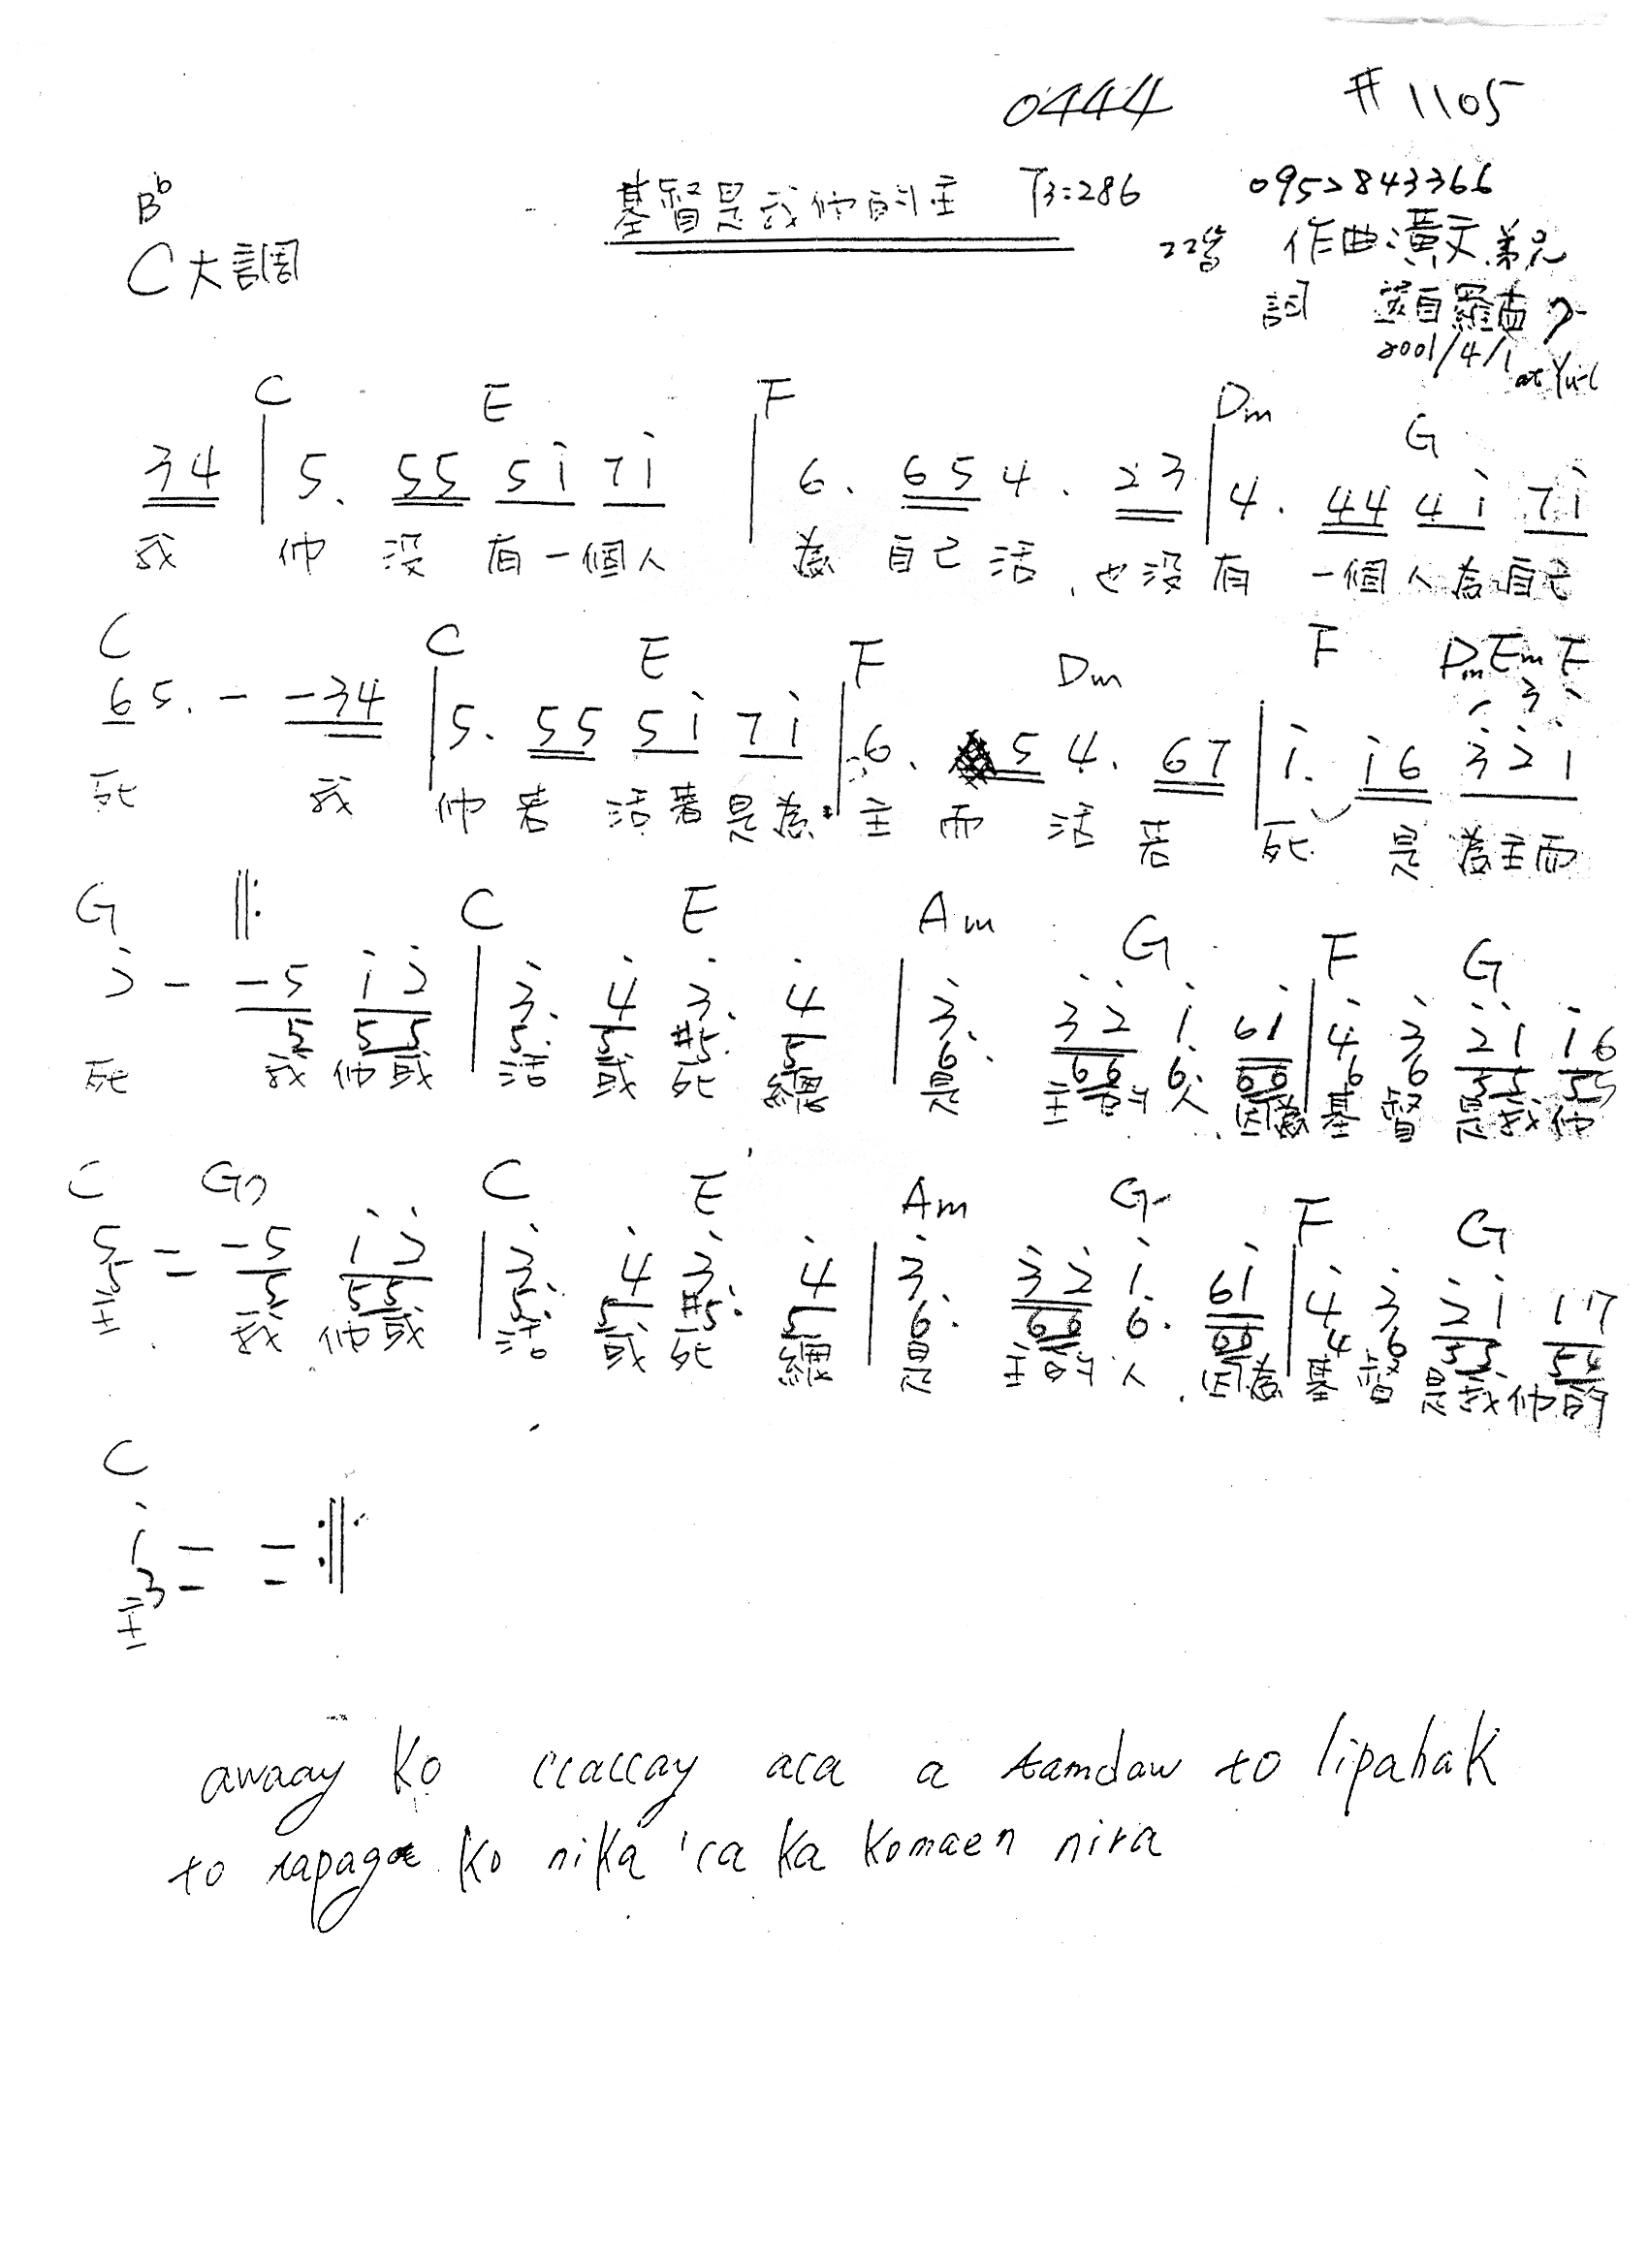 0444 # 1105
B♭ 基督是我們的主 T3:286 0952843366
C大調 作曲:黃文弟兄
詞 選自羅馬
2001/4/1 at Yuli
C E F Dm G
34 | 5. 55 5i 7i | 6. 65 4. 23 | 4. 44 4i 7i
我 們 沒 有一個人 為 自己 活,也沒有 一個人為自己
C C E F Dm F Dm Em F
65. - -34 | 5. 55 5i 7i | 6. 5 4. 67 | i. i6 3̇2̇i
死 我 們若 活著是為 主 而 活 若 死 是 為主而
G ||: C E Am G F G
2̇ - -5 i2̇ | 3̇. 4̇ 3̇. 4̇ | 3̇. 3̇2̇ i. 6i | 4̇ 3̇ 2̇i i6
5 55 5. 5 #5. 5 6. 66 6. 66 6 6 55 55
死 我 們或 活 或 死 總 是 主的 人,因為 基 督 是我 們
C G7 C E Am G F G
5 = -5 i2̇ | 3̇. 4̇ 3̇. 4̇ | 3̇. 3̇2̇ i. 6i | 4̇ 3̇ 2̇i i7
5 5 55 5. 5 #5. 5 6. 66 6. 66 4 6 55 54
主 我 們或 活 或 死 總 是 主的 人,因為 基 督 是我們的
C
i - - :||
3 - -
主
awaay ko ccaccay aca a tamdaw to lipahak
to ko nika 'ca ka komaen nira